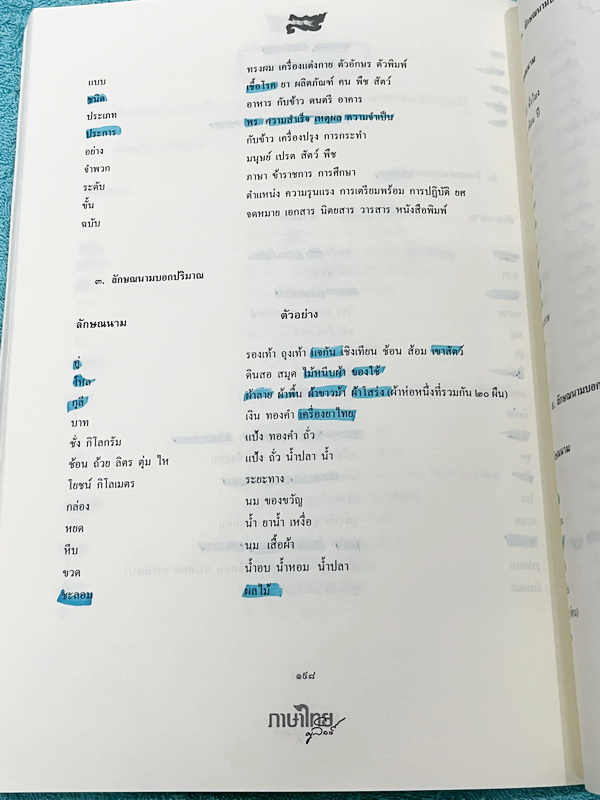 แบบ ทรงผม เครื่องแต่งกาย ตัวอักษร ตัวพิมพ์
ชนิด เชื้อโรค ยา ผลิตภัณฑ์ คน พืช สัตว์
ประเภท อาหาร กับข้าว ดนตรี อาคาร
ประการ พร ความสำเร็จ เหตุผล ความจำเป็น
อย่าง กับข้าว เครื่องปรุง การกระทำ
จำพวก มนุษย์ เปรต สัตว์ พืช
ระดับ ภาษา ข้าราชการ การศึกษา
ขั้น ตำแหน่ง ความรุนแรง การเตรียมพร้อม การปฏิบัติ ยศ
ฉบับ จดหมาย เอกสาร นิตยสาร วารสาร หนังสือพิมพ์
๓. ลักษณนามบอกปริมาณ
ลักษณนาม ตัวอย่าง
คู่ รองเท้า ถุงเท้า แจกัน เชิงเทียน ช้อน ส้อม เขาสัตว์
โหล ดินสอ สมุด ไม้หนีบผ้า ของใช้
กุลี ผ้าลาย ผ้าพื้น ผ้าขาวม้า ผ้าโสร่ง (ผ้าห่อหนึ่งที่รวมกัน ๒๐ ผืน)
บาท เงิน ทองคำ เครื่องยาไทย
ชั่ง กิโลกรัม แป้ง ทองคำ ถั่ว
ช้อน ถ้วย ลิตร ตุ่ม ไห แป้ง ถั่ว น้ำปลา น้ำ
โยชน์ กิโลเมตร ระยะทาง
กล่อง นม ของขวัญ
หยด น้ำ ยาน้ำ เหงื่อ
หีบ นม เสื้อผ้า
ขวด น้ำอบ น้ำหอม น้ำปลา
ชะลอม ผลไม้
๑๙๘
ภาษาไทย